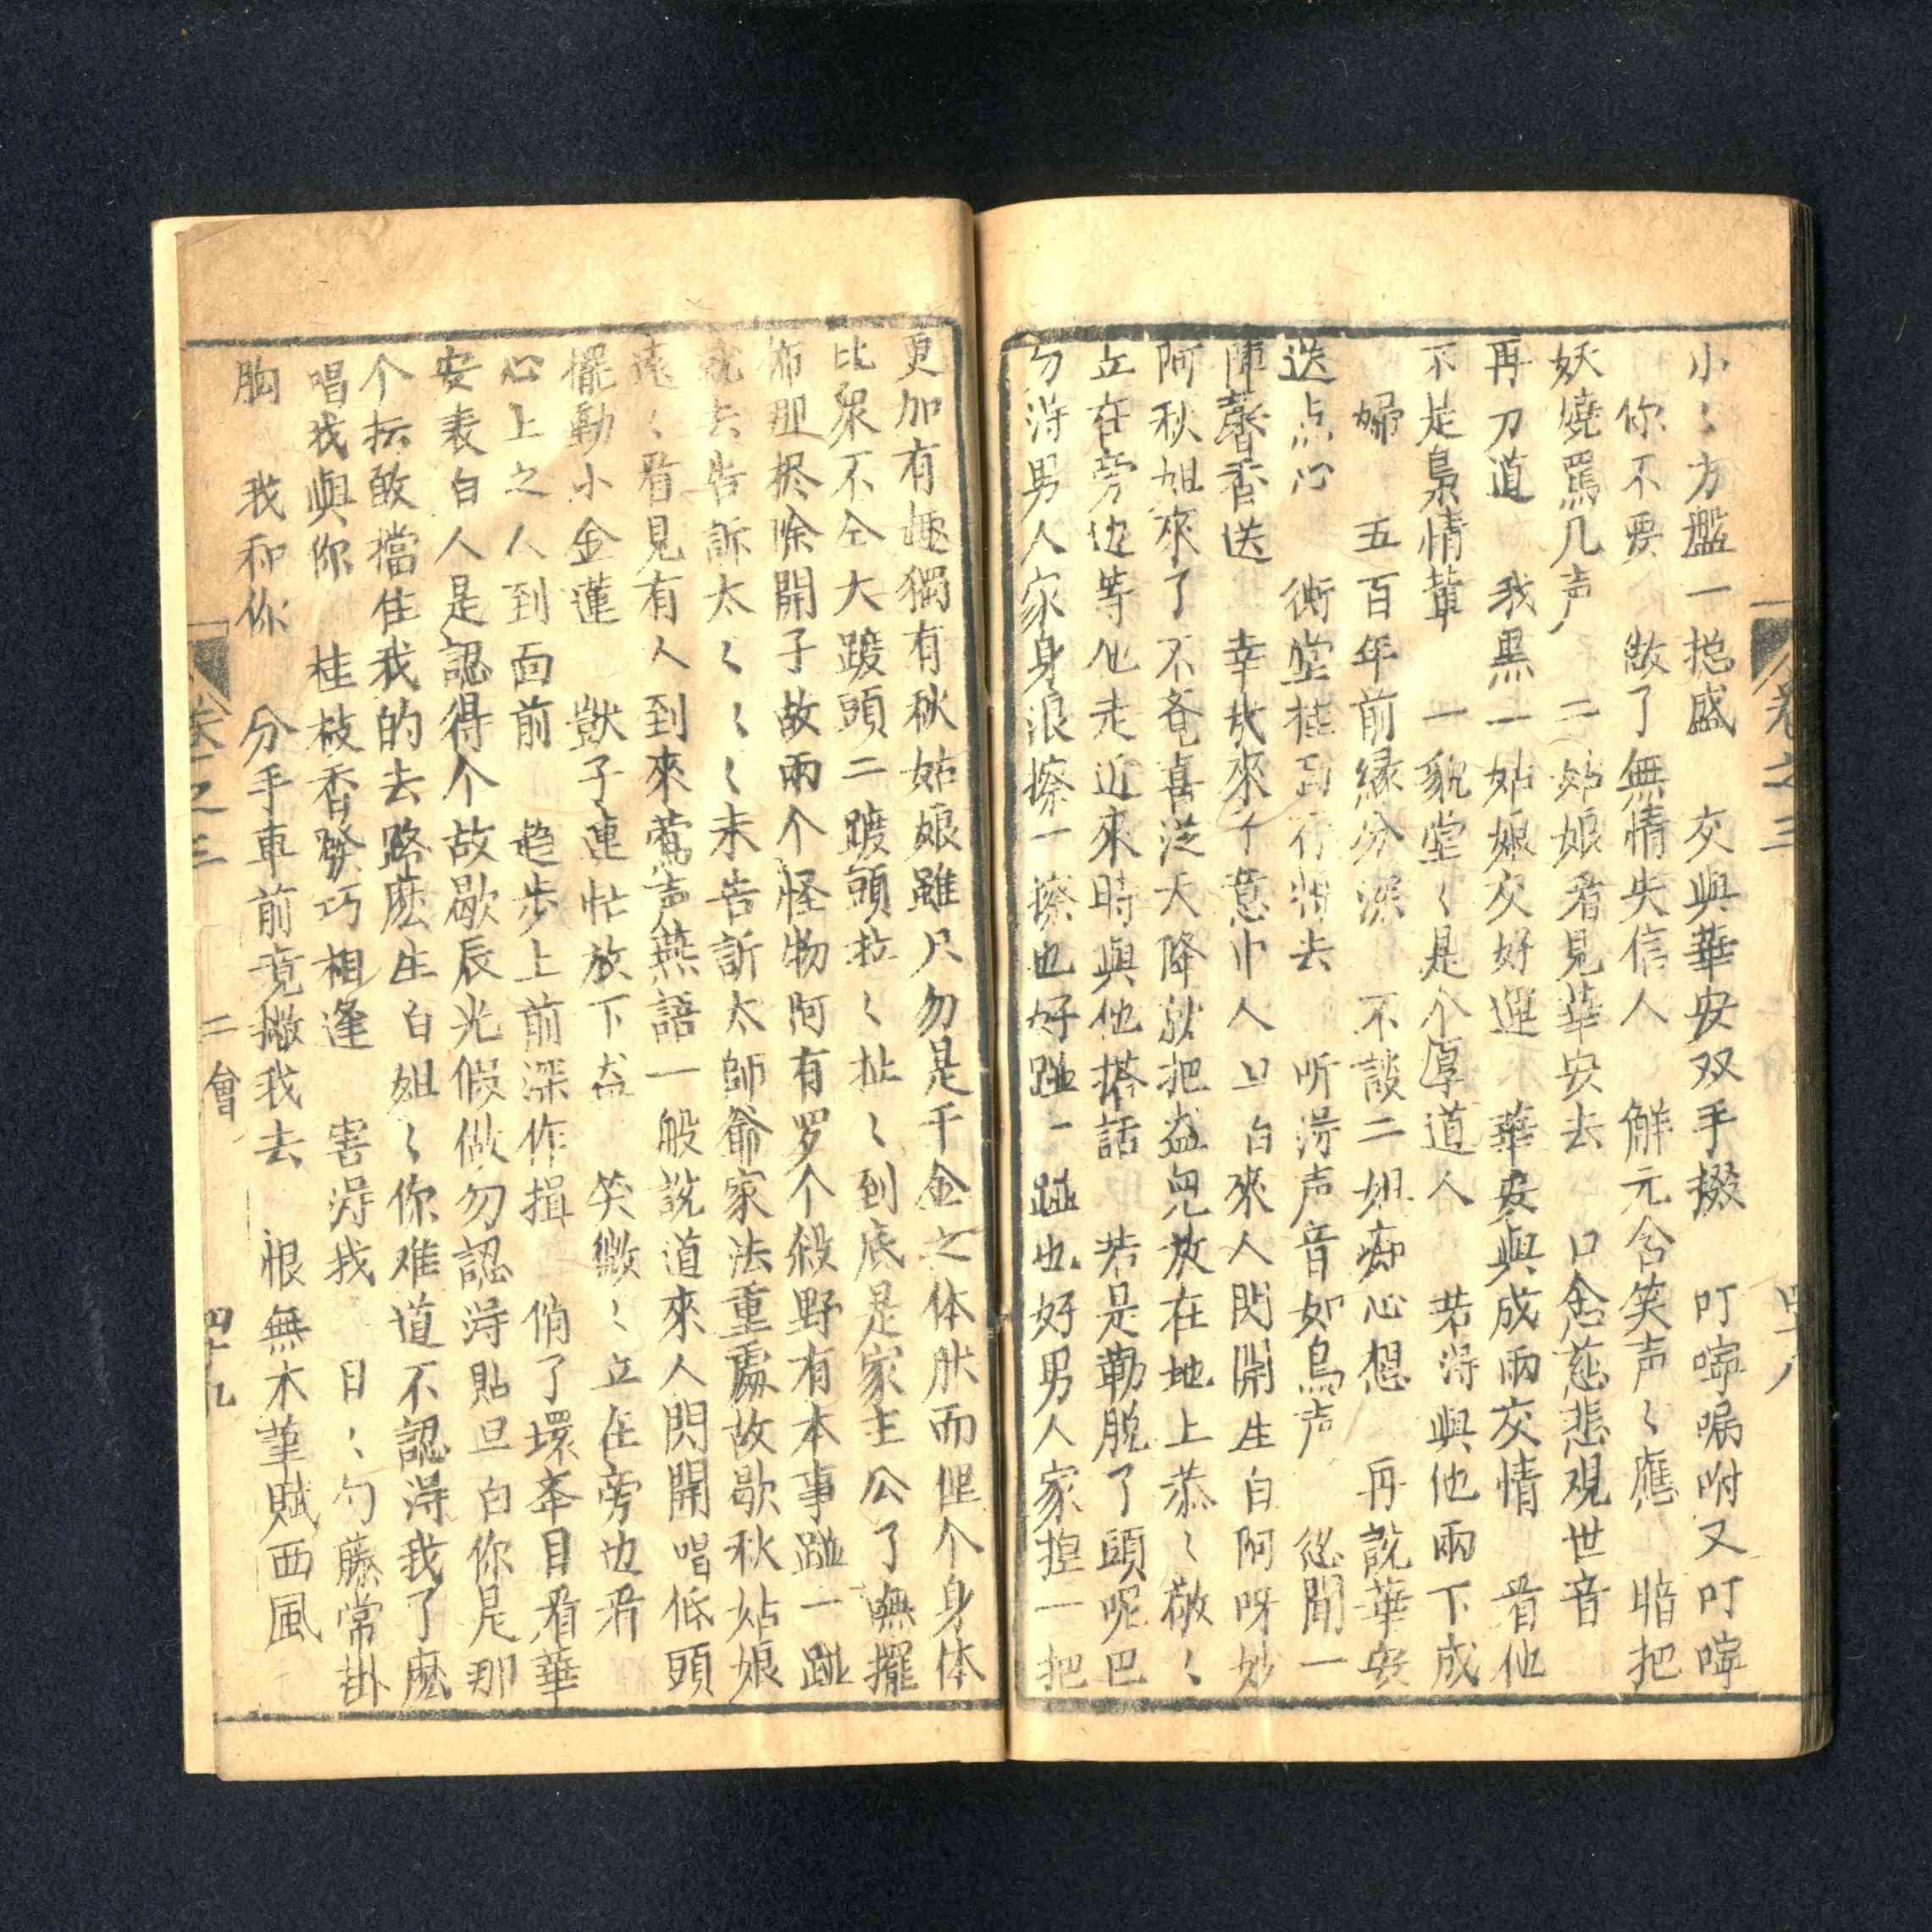 小〻方盤一搃盛　交與華安双手掇　叮嚀嘱咐又叮嚀
你不要　做了無情失信人　觧元含笑声〻應　暗把
妖嬈罵几声　二姑娘看見華安去　口念慈悲观世音
再刀道　我黑一姑娘交好運　華安與成兩交情　看他
不是梟情輩　一貌堂〻是个厚道人　若淂與他兩下成
婦　五百年前緣分深　不談二姐痴心想　再說華安
送点心　衖堂　行将去　听淂声音如鳥声　忽聞一
陣馨香送　幸　來个意中人　旦白來人閃開生白阿呀妙
阿秋姐來了不　喜　天降就把盆児放在地上恭〻敬〻
立在旁边等他走近來時與他搭話　若是勒脱了頭呢巴
勿淂男人家身浪擦一擦也好踫一踫也好男人家　一把
更加有趣獨有秋姑娘雖只勿是千金之体肰而　个身体
比衆不仝大踱頭二踱頭拉〻扯〻到底是家主公了　擺
佈那　除開子故兩个怪物阿有罗个殺野有本事踫一踫
就去告訴太〻〻〻未告訴太師爺家法重處故歇秋姑娘
遠〻看見有人到來鶯声燕語一般說道來人閃開　唱低頭
擺動小金蓮　獃子連忙放下盆　笑微〻立在旁边看
心上之人到面前　趋步上前深作揖　俏了環　目看華
安表白人是認得个故歇辰光假做勿認淂貼旦白你是那
个　敢擋住我的去路麽生白姐〻你难道不認淂我了麽
唱我與你　桂枝香發巧相逢　害淂我　日〻勾藤常掛
胸　我和你　分手車前竟撇我去　恨無木筆賦西風
卷之三
二會
四十九
卷之三
四十八